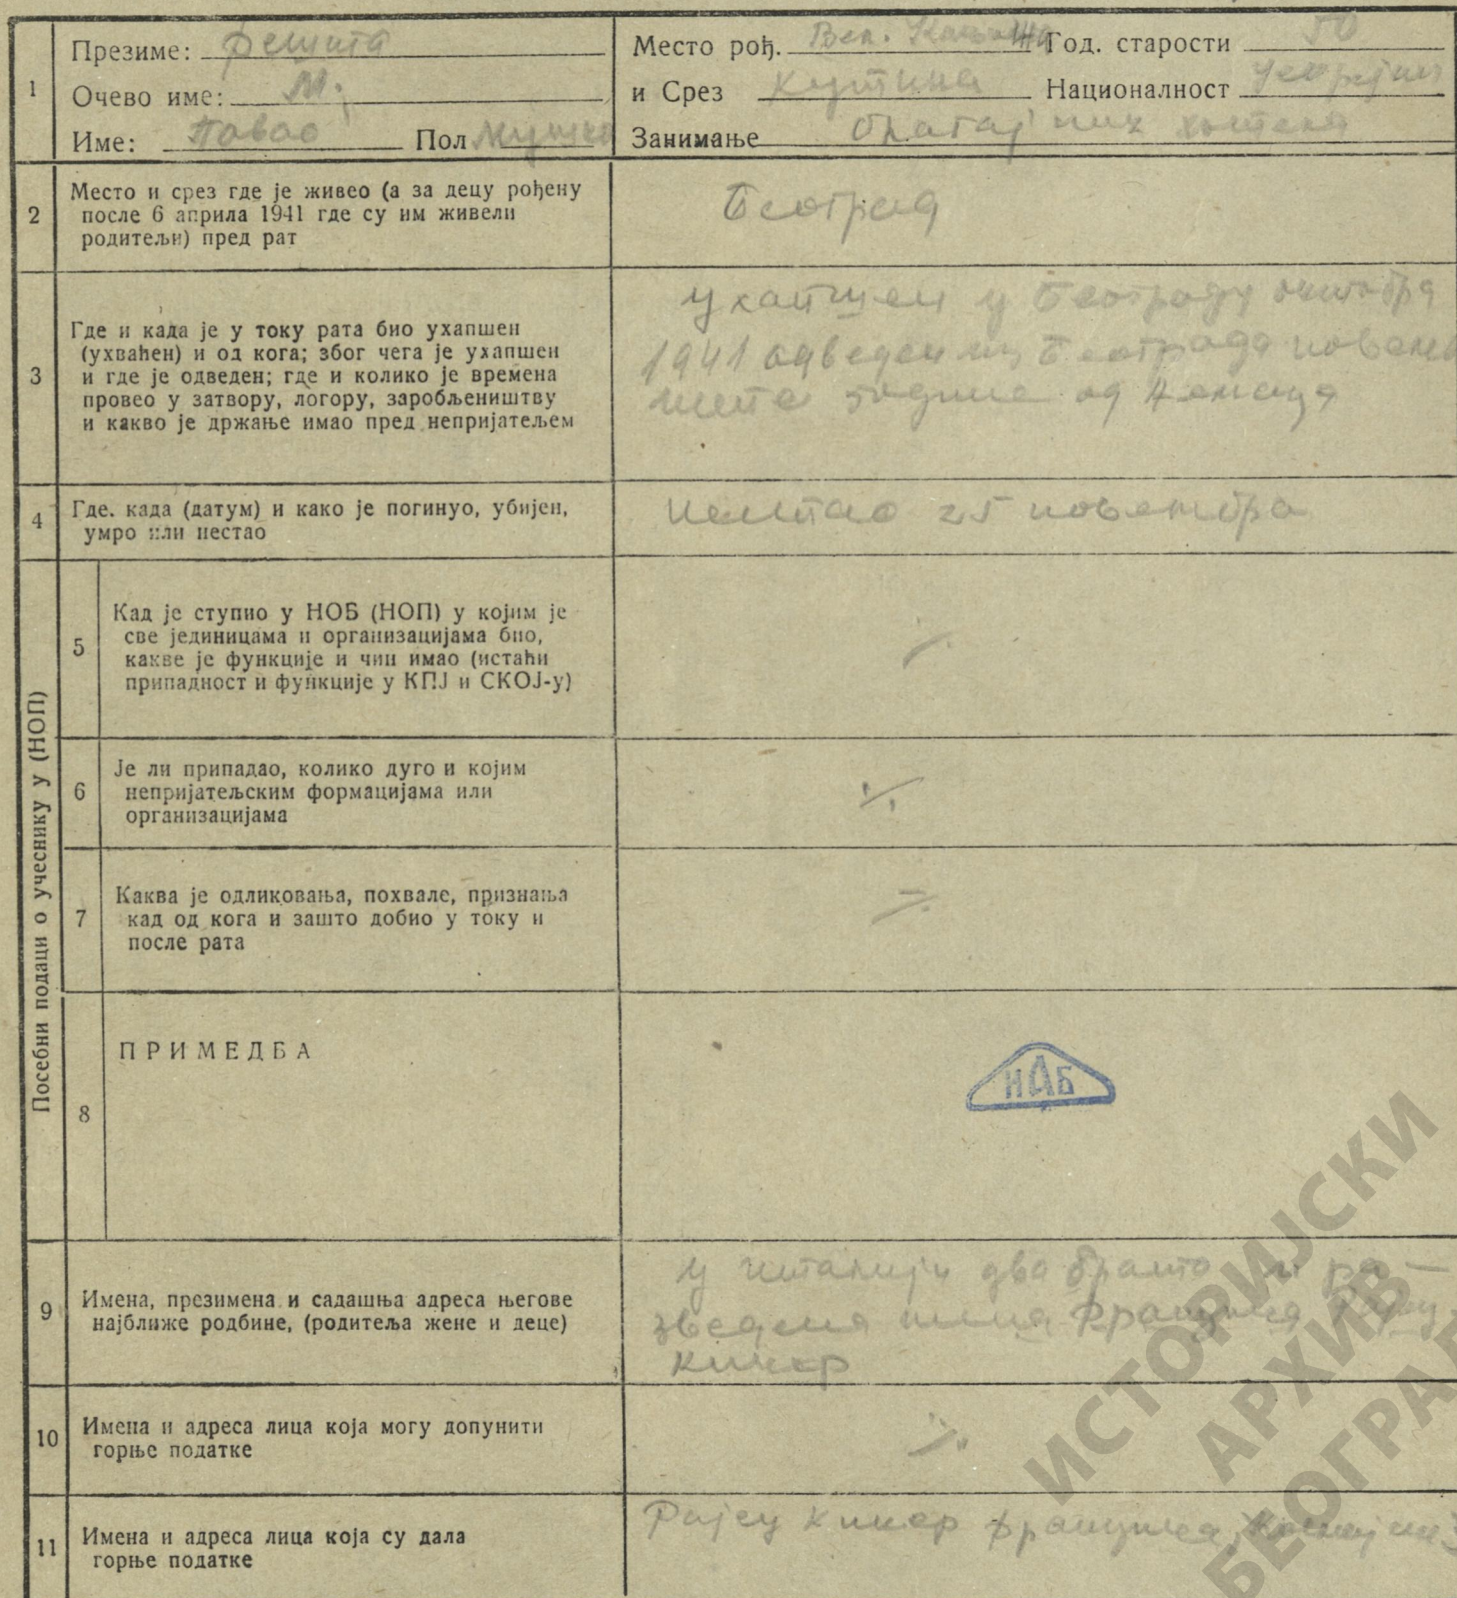 1
Презиме: Фешита
Очево име: М.
Име: Павао Пол Мушки
Место рођ. Вел. Год. старости 50
и Срез Кутина Националност Јеврејин
Занимање
2
Место и срез где је живео (а за децу рођену
после 6 априла 1941 где су им живели
родитељи) пред рат
Београд
3
Где и када је у току рата био ухапшен
(ухваћен) и од кога; због чега је ухапшен
и где је одведен; где и колико је времена
провео у затвору, логору, заробљеништву
и какво је држање имао пред непријатељем
ухапшен у Београду октобра
1941 одведен из Београда новемб
исте године од Немаца
4
Где. када (датум) и како је погинуо, убијен,
умро или нестао
нестао 25 новембра
Посебни подаци о учеснику у (НОП)
5
Кад је ступио у НОБ (НОП) у којим је
све јединицама и организацијама био,
какве је функције и чин имао (истаћи
припадност и функције у КПЈ и СКОЈ-у)
6
Је ли припадао, колико дуго и којим
непријатељским формацијама или
организацијама
7
Каква је одликовања, похвале, признања
кад од кога и зашто добио у току и
после рата
8
ПРИМЕДБА
ИАБ
9
Имена, презимена и садашња адреса његове
најближе родбине, (родитеља жене и деце)
у италији два брата и ра-
зведена жена Францишка Рајсу
Кинер
10
Имена и адреса лица која могу допунити
горње податке
11
Имена и адреса лица која су дала
горње податке
Рајсу Кинер Францишка
ИСТОРИЈСКИ
АРХИВ
БЕОГРА